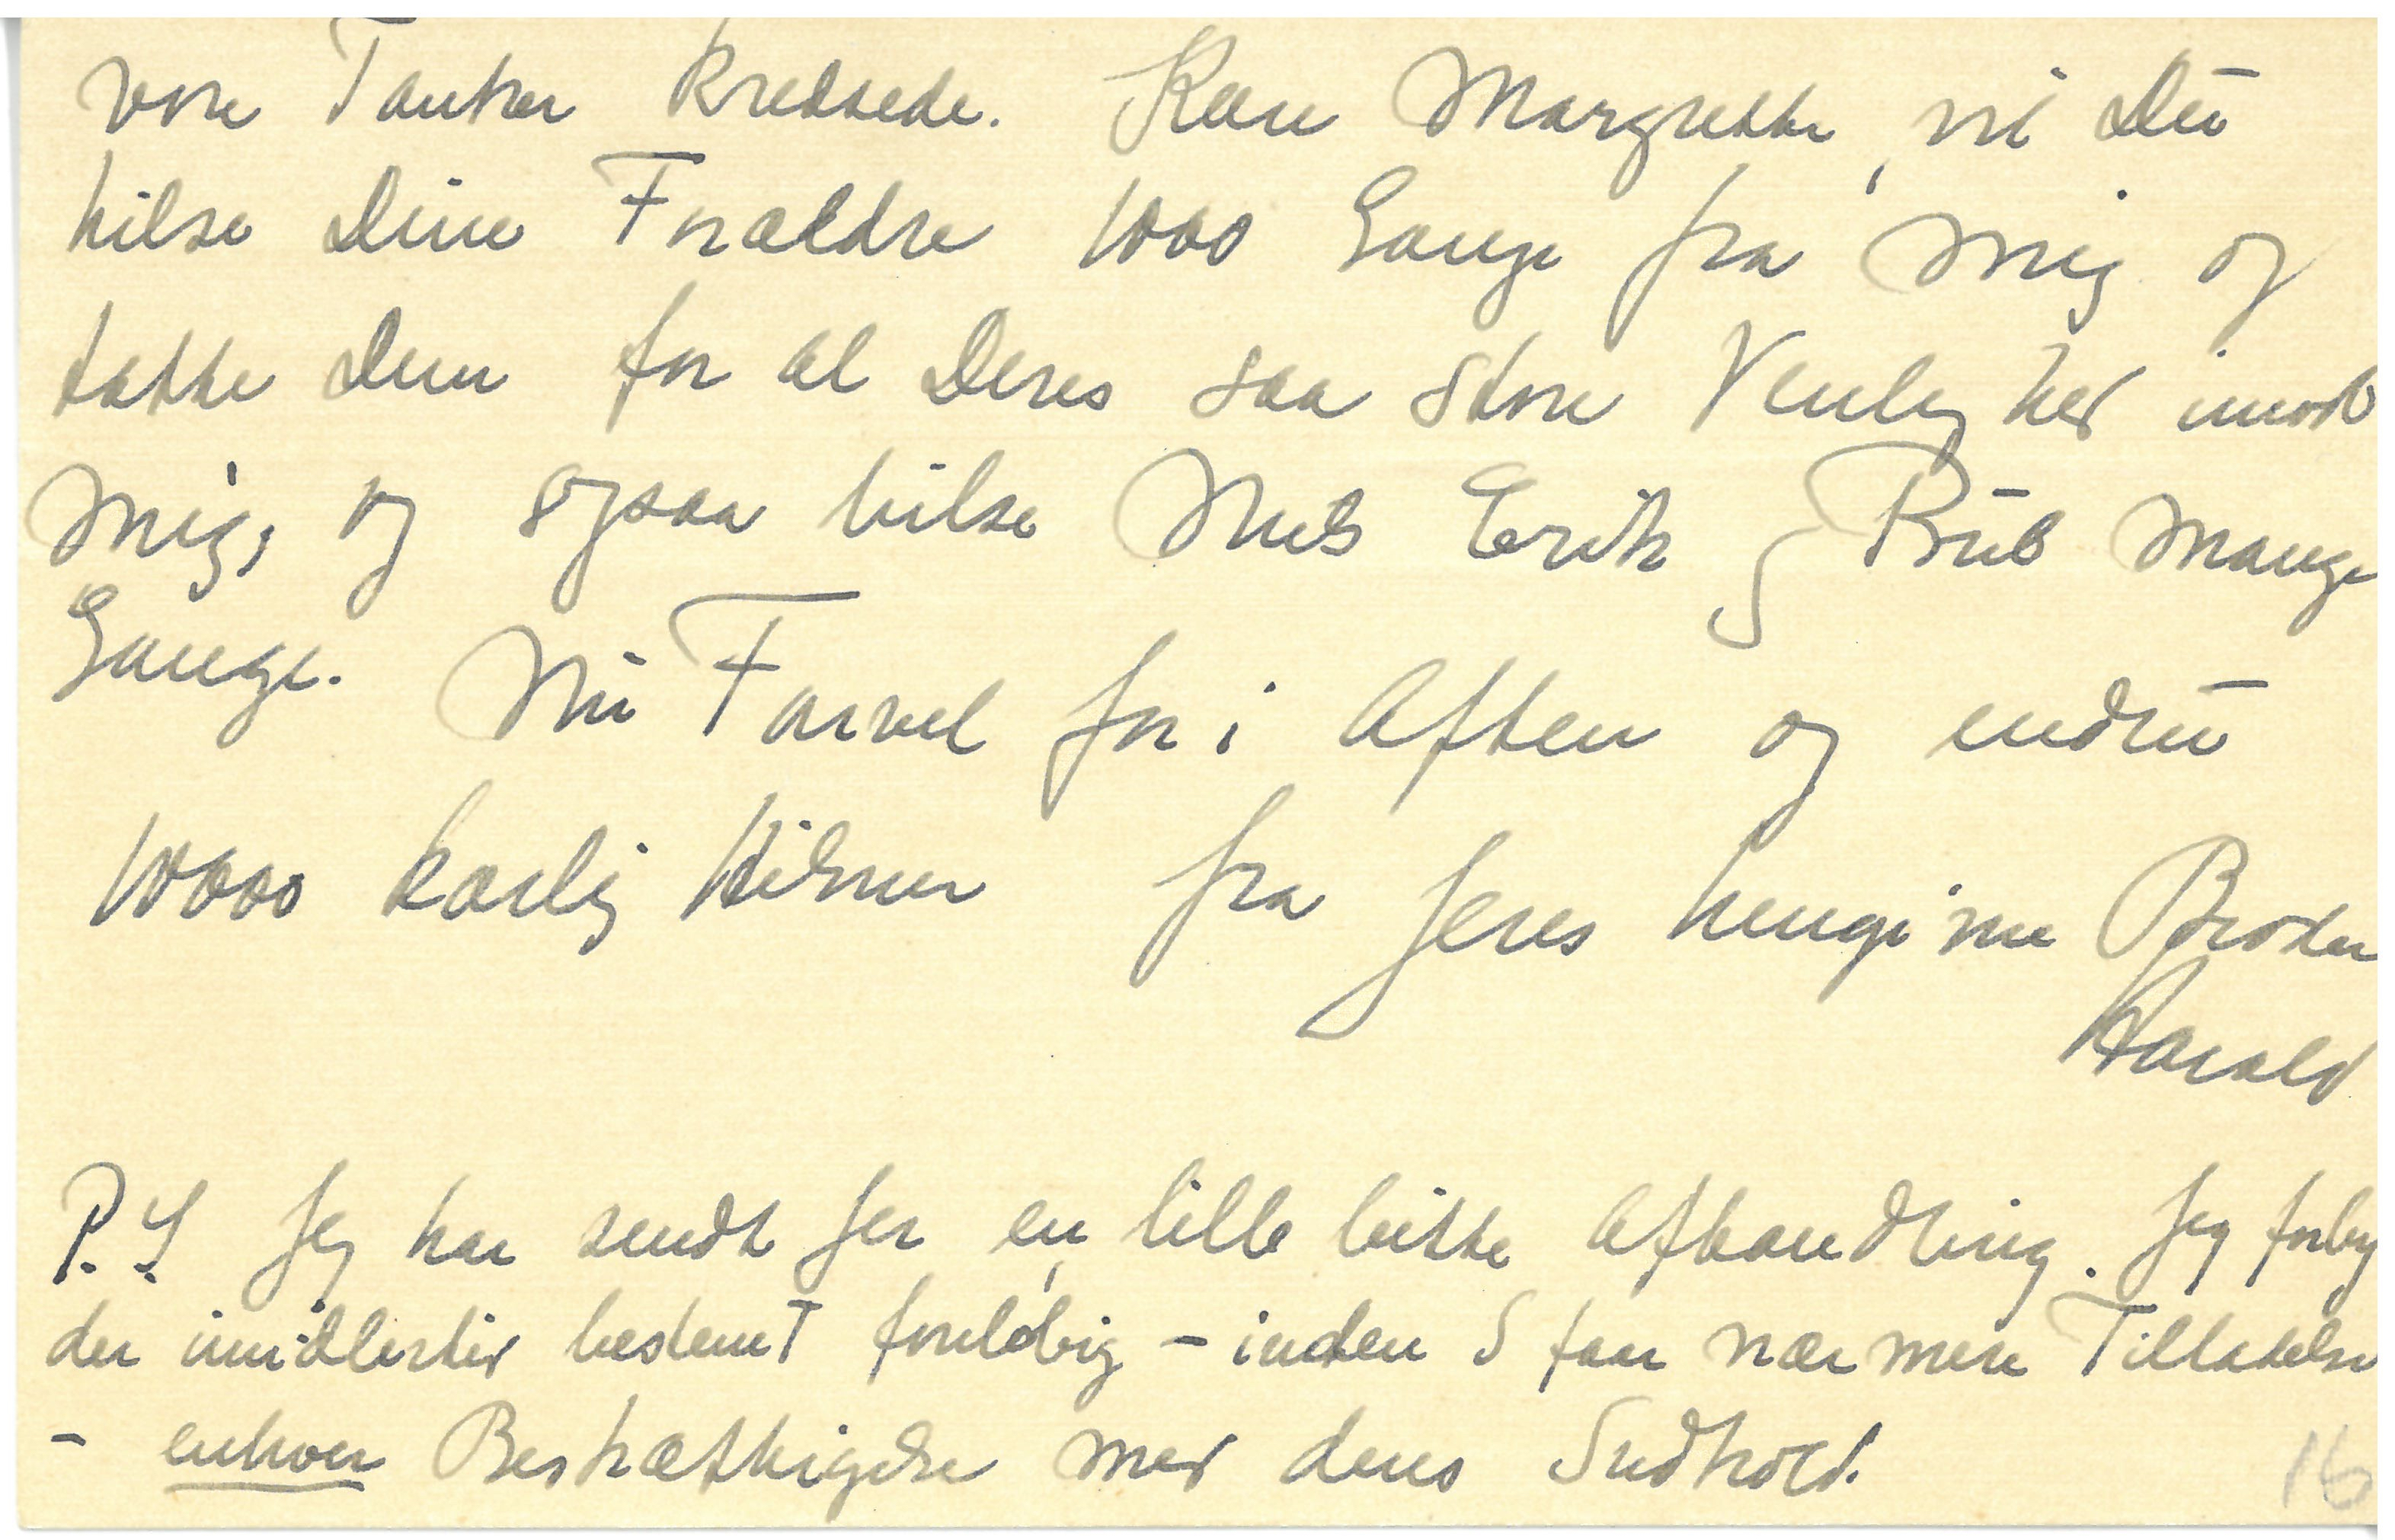 vore Tanker kredsede. Kære Margrethe, vil Du
hilse Dine Forældre 1000 Gange fra mig og
takke Dem for al Deres saa store Venlighed imod
mig, og ogsaa hilse Erik Poul mange
Gange. Nu Farvel for i Aften og endnu
10000 kærlig Hilsner fra Jeres hengivne Broder
Harald
P.S Jeg har sendt Jer en lille bitte Afhandling. Jeg forby
der imidlertid bestemt foreløbig – inden I faar nærmere Tilladelse
– enhver Beskæftigelse med dens Indhold.
16